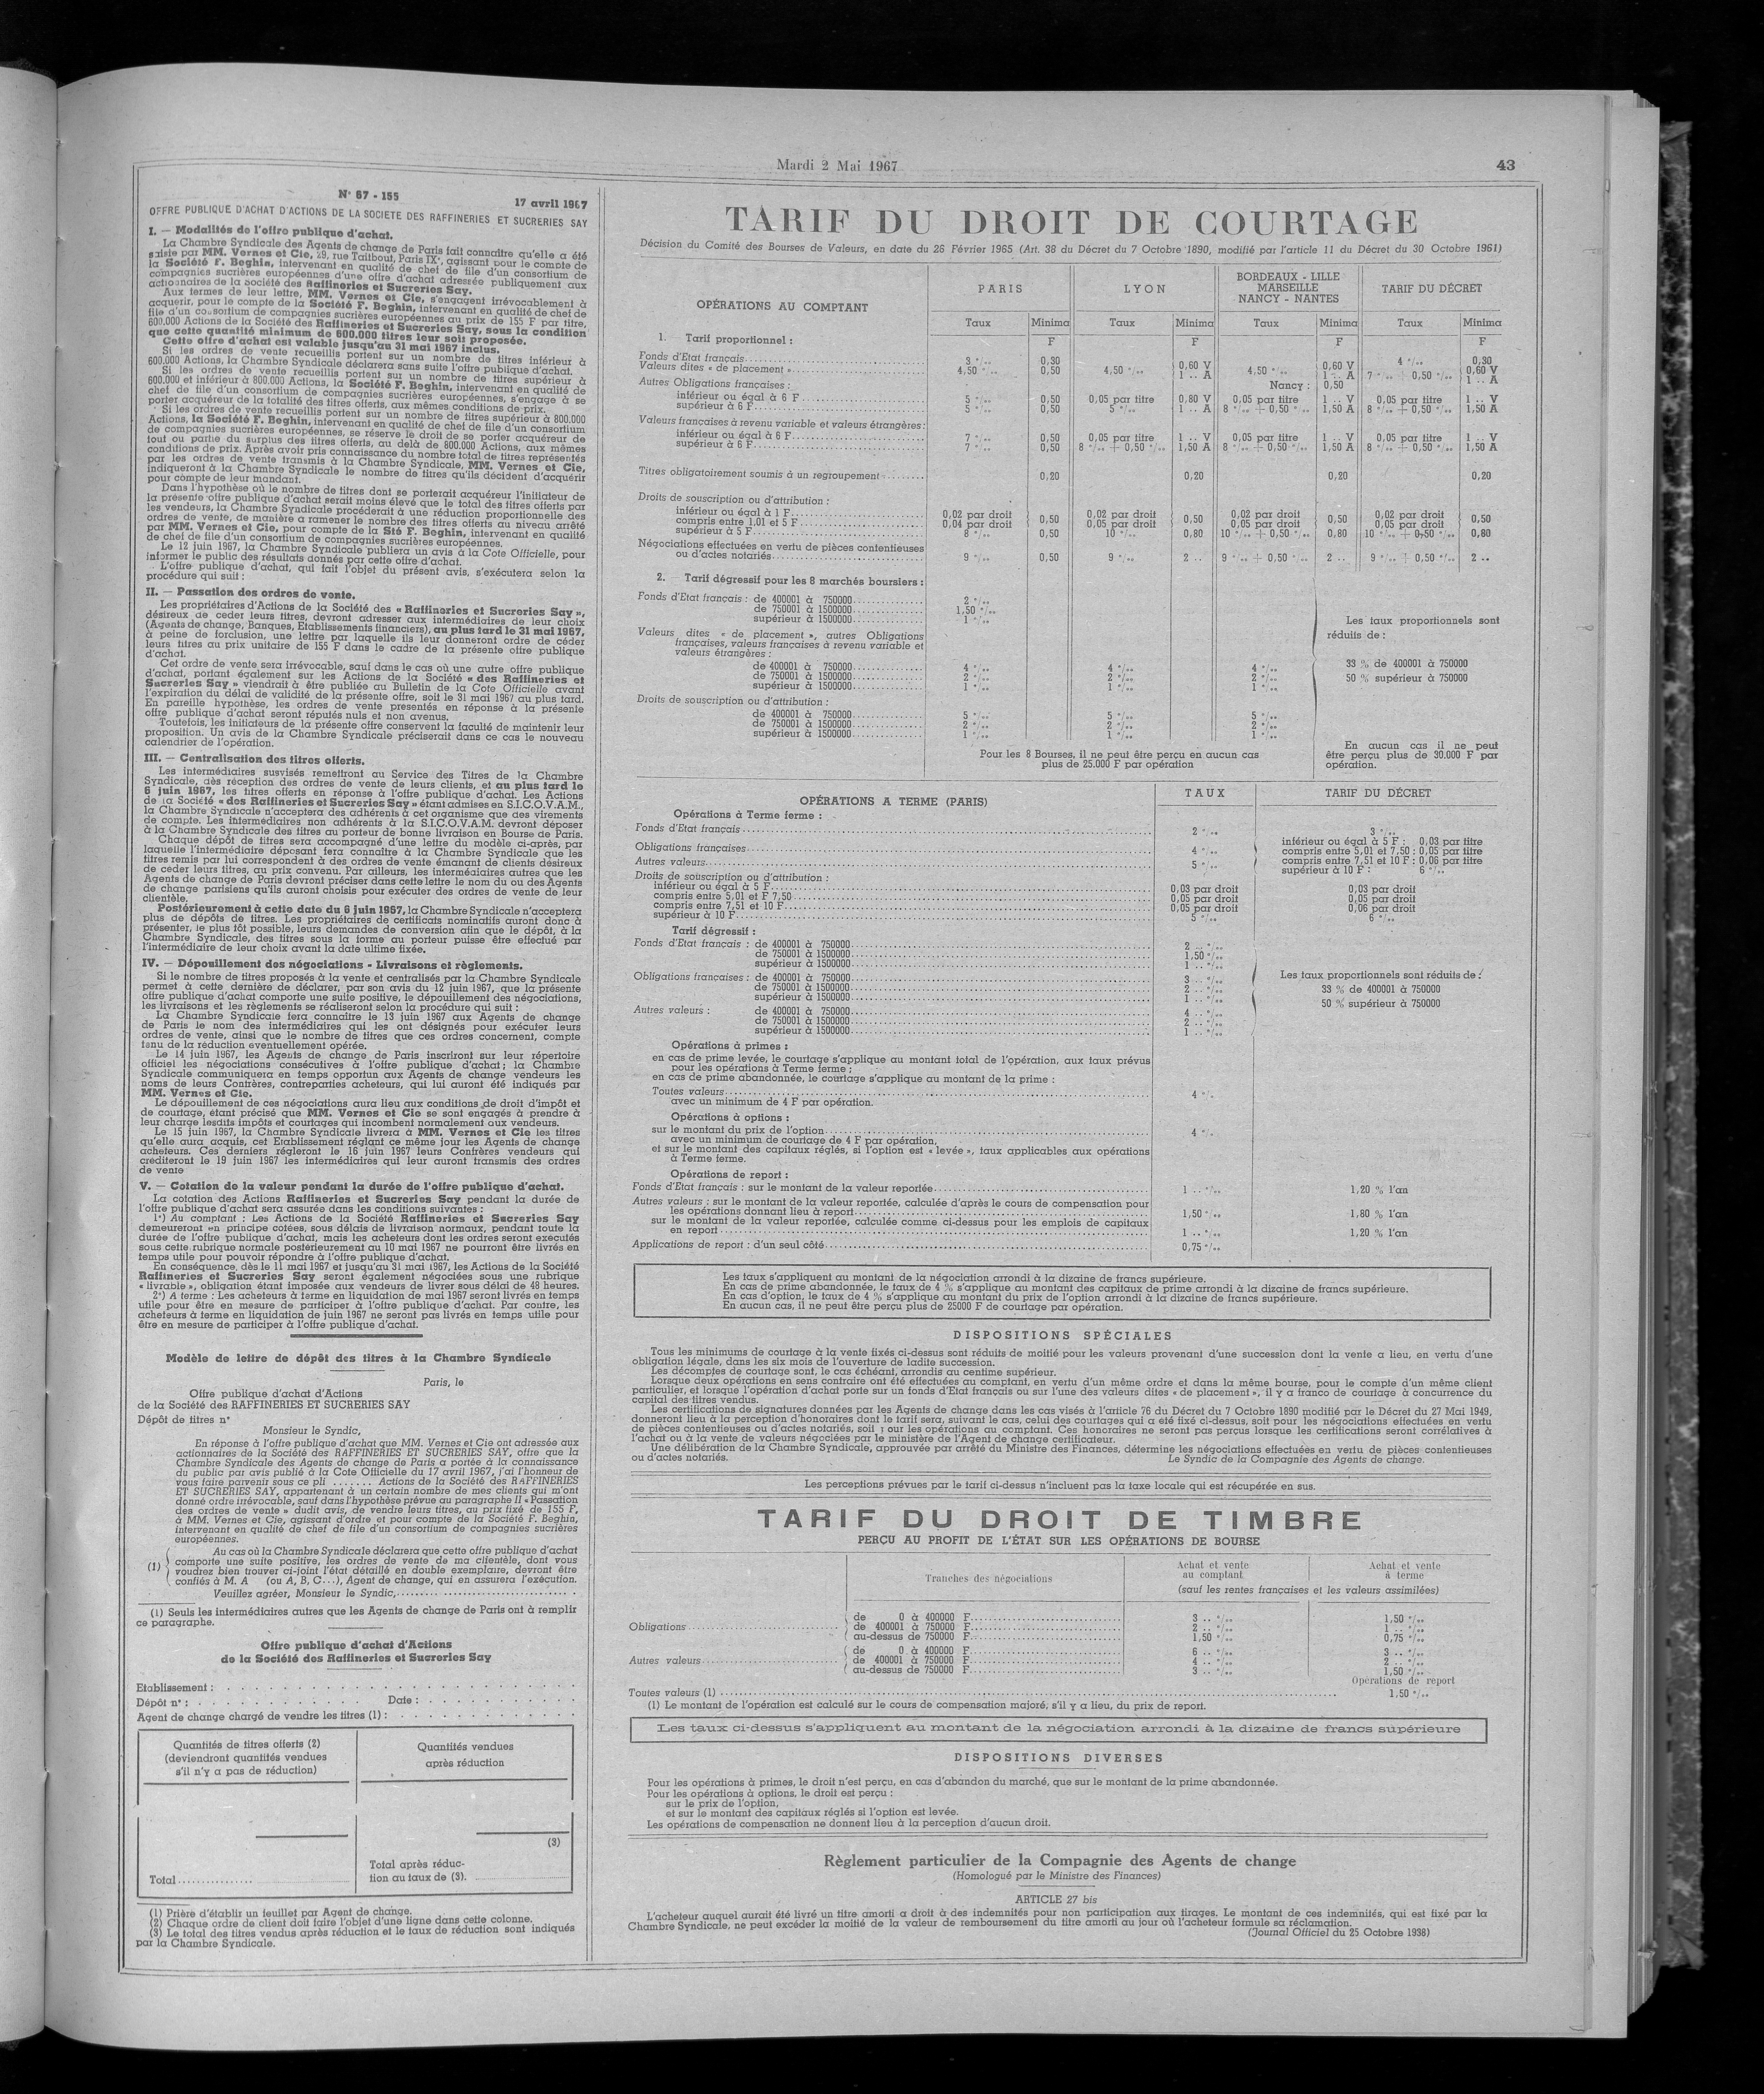 Mardi 2 Mai 1967
43
N° 67 - 155
17 avril 1967
OFFRE PUBLIQUE D'ACHAT D'ACTIONS DE LA SOCIETE DES RAFFINERIES ET SUCRERIES SAY
I. — Modalités de l'offre publique d'achat.
La Chambre Syndicale des Agents de change de Paris fait connaître qu'elle a été
saisie par MM. Vernes et Cie, 29, rue Taitbout, Paris IXe, agissant pour le compte de
la Société F. Beghin, intervenant en qualité de chef de file d'un consortium de
compagnies sucrières européennes d'une offre d'achat adressée publiquement aux
actionnaires de la Société des Raffineries et Sucreries Say.
Aux termes de leur lettre, MM. Vernes et Cie, s'engagent irrévocablement à
acquérir, pour le compte de la Société F. Beghin, intervenant en qualité de chef de
file d'un consortium de compagnies sucrières européennes au prix de 155 F par titre,
600.000 Actions de la Société des Raffineries et Sucreries Say, sous la condition
que cette quantité minimum de 600.000 titres leur soit proposée.
Cette offre d'achat est valable jusqu'au 31 mai 1967 inclus.
Si les ordres de vente recueillis portent sur un nombre de titres inférieur à
600.000 Actions, la Chambre Syndicale déclarera sans suite l'offre publique d'achat.
Si les ordres de vente recueillis portent sur un nombre de titres supérieur à
600.000 et inférieur à 800.000 Actions, la Société F. Beghin, intervenant en qualité de
chef de file d'un consortium de compagnies sucrières européennes, s'engage à se
porter acquéreur de la totalité des titres offerts, aux mêmes conditions de prix.
Si les ordres de vente recueillis portent sur un nombre de titres supérieur à 800.000
Actions, la Société F. Beghin, intervenant en qualité de chef de file d'un consortium
de compagnies sucrières européennes, se réserve le droit de se porter acquéreur de
tout ou partie du surplus des titres offerts, au delà de 800.000 Actions, aux mêmes
conditions de prix. Après avoir pris connaissance du nombre total de titres représentés
par les ordres de vente transmis à la Chambre Syndicale, MM. Vernes et Cie,
indiqueront à la Chambre Syndicale le nombre de titres qu'ils décident d'acquérir
pour compte de leur mandant.
Dans l'hypothèse où le nombre de titres dont se porterait acquéreur l'initiateur de
la présente offre publique d'achat serait moins élevé que le total des titres offerts par
les vendeurs, la Chambre Syndicale procéderait à une réduction proportionnelle des
ordres de vente, de manière a ramener le nombre des titres offerts au niveau arrêté
par MM. Vernes et Cie, pour compte de la Sté F. Beghin, intervenant en qualité
de chef de file d'un consortium de compagnies sucrières européennes.
Le 12 juin 1967, la Chambre Syndicale publiera un avis à la Cote Officielle, pour
informer le public des résultats donnés par cette offre d'achat.
L'offre publique d'achat, qui fait l'objet du présent avis, s'exécutera selon la
procédure qui suit :
II. — Passation des ordres de vente.
Les propriétaires d'Actions de la Société des « Raffineries et Sucreries Say »,
désireux de ceder leurs titres, devront adresser aux intermédiaires de leur choix
(Agents de change, Banques, Etablissements financiers), au plus tard le 31 mai 1967,
à peine de forclusion, une lettre par laquelle ils leur donneront ordre de céder
leurs titres au prix unitaire de 155 F dans le cadre de la présente offre publique
d'achat.
Cet ordre de vente sera irrévocable, sauf dans le cas où une autre offre publique
d'achat, portant également sur les Actions de la Société « des Raffineries et
Sucreries Say » viendrait à être publiée au Bulletin de la Cote Officielle avant
l'expiration du délai de validité de la présente offre, soit le 31 mai 1967 au plus tard.
En pareille hypothèse, les ordres de vente presentés en réponse à la présente
offre publique d'achat seront réputés nuls et non avenus.
Toutefois, les initiateurs de la présente offre conservent la faculté de maintenir leur
proposition. Un avis de la Chambre Syndicale préciserait dans ce cas le nouveau
calendrier de l'opération.
III. — Centralisation des titres offerts.
Les intermédiaires susvisés remettront au Service des Titres de la Chambre
Syndicale, dès réception des ordres de vente de leurs clients, et au plus tard le
6 juin 1967, les titres offerts en réponse à l'offre publique d'achat. Les Actions
de la Société « des Raffineries et Sucreries Say » étant admises en S.I.C.O.V.A.M.,
la Chambre Syndicale n'acceptera des adhérents à cet organisme que des virements
de compte. Les intermédiaires non adhérents à la S.I.C.O.V.A.M. devront déposer
à la Chambre Syndicale des titres au porteur de bonne livraison en Bourse de Paris.
Chaque dépôt de titres sera accompagné d'une lettre du modèle ci-après, par
laquelle l'intermédiaire déposant fera connaître à la Chambre Syndicale que les
titres remis par lui correspondent à des ordres de vente émanant de clients désireux
de ceder leurs titres, au prix convenu. Par ailleurs, les intermédiaires autres que les
Agents de change de Paris devront préciser dans cette lettre le nom du ou des Agents
de change parisiens qu'ils auront choisis pour exécuter des ordres de vente de leur
clientèle.
Postérieurement à cette date du 6 juin 1967, la Chambre Syndicale n'acceptera
plus de dépôts de titres. Les propriétaires de certificats nominatifs auront donc à
présenter, le plus tôt possible, leurs demandes de conversion afin que le dépôt, à la
Chambre Syndicale, des titres sous la forme au porteur puisse être effectué par
l'intermédiaire de leur choix avant la date ultime fixée.
IV. — Dépouillement des négociations - Livraisons et règlements.
Si le nombre de titres proposés à la vente et centralisés par la Chambre Syndicale
permet à cette dernière de déclarer, par son avis du 12 juin 1967, que la présente
offre publique d'achat comporte une suite positive, le dépouillement des négociations,
les livraisons et les règlements se réaliseront selon la procédure qui suit :
La Chambre Syndicale fera connaître le 13 juin 1967 aux Agents de change
de Paris le nom des intermédiaires qui les ont désignés pour exécuter leurs
ordres de vente, ainsi que le nombre de titres que ces ordres concernent, compte
tenu de la réduction eventuellement opérée.
Le 14 juin 1967, les Agents de change de Paris inscriront sur leur répertoire
officiel les négociations consécutives à l'offre publique d'achat; la Chambre
Syndicale communiquera en temps opportun aux Agents de change vendeurs les
noms de leurs Confrères, contreparties acheteurs, qui lui auront été indiqués par
MM. Vernes et Cie.
Le dépouillement de ces négociations aura lieu aux conditions de droit d'impôt et
de courtage, étant précisé que MM. Vernes et Cie se sont engagés à prendre à
leur charge lesdits impôts et courtages qui incombent normalement aux vendeurs.
Le 15 juin 1967, la Chambre Syndicale livrera à MM. Vernes et Cie les titres
qu'elle aura acquis, cet Etablissement réglant ce même jour les Agents de change
acheteurs. Ces derniers régleront le 16 juin 1967 leurs Confrères vendeurs qui
créditeront le 19 juin 1967 les intermédiaires qui leur auront transmis des ordres
de vente
V. — Cotation de la valeur pendant la durée de l'offre publique d'achat.
La cotation des Actions Raffineries et Sucreries Say pendant la durée de
l'offre publique d'achat sera assurée dans les conditions suivantes :
1°) Au comptant : Les Actions de la Société Raffineries et Sucreries Say
demeureront en principe cotées, sous délais de livraison normaux, pendant toute la
durée de l'offre publique d'achat, mais les acheteurs dont les ordres seront executés
sous cette rubrique normale postérieurement au 10 mai 1967 ne pourront être livrés en
temps utile pour pouvoir répondre à l'offre publique d'achat.
En conséquence, dès le 11 mai 1967 et jusqu'au 31 mai 1967, les Actions de la Société
Raffineries et Sucreries Say seront également négociées sous une rubrique
« livrable », obligation étant imposée aux vendeurs de livrer sous délai de 48 heures.
2°) A terme : Les acheteurs à terme en liquidation de mai 1967 seront livrés en temps
utile pour être en mesure de participer à l'offre publique d'achat. Par contre, les
acheteurs à terme en liquidation de juin 1967 ne seront pas livrés en temps utile pour
être en mesure de participer à l'offre publique d'achat.
Modèle de lettre de dépôt des titres à la Chambre Syndicale
Paris, le
Offre publique d'achat d'Actions
de la Société des RAFFINERIES ET SUCRERIES SAY
Dépôt de titres n°
Monsieur le Syndic,
En réponse à l'offre publique d'achat que MM. Vernes et Cie ont adressée aux
actionnaires de la Société des RAFFINERIES ET SUCRERIES SAY, offre que la
Chambre Syndicale des Agents de change de Paris a portée à la connaissance
du public par avis publié à la Cote Officielle du 17 avril 1967, j'ai l'honneur de
vous faire parvenir sous ce pli ....... Actions de la Société des RAFFINERIES
ET SUCRERIES SAY, appartenant à un certain nombre de mes clients qui m'ont
donné ordre irrévocable, sauf dans l'hypothèse prévue au paragraphe II « Passation
des ordres de vente » dudit avis, de vendre leurs titres, au prix fixé de 155 F,
à MM. Vernes et Cie, agissant d'ordre et pour compte de la Société F. Beghin,
intervenant en qualité de chef de file d'un consortium de compagnies sucrières
européennes.
Au cas où la Chambre Syndicale déclarera que cette offre publique d'achat
(1) comporte une suite positive, les ordres de vente de ma clientèle, dont vous
voudrez bien trouver ci-joint l'état détaillé en double exemplaire, devront être
confiés à M. A (ou A, B, C...), Agent de change, qui en assurera l'exécution.
Veuillez agréer, Monsieur le Syndic,
(1) Seuls les intermédiaires autres que les Agents de change de Paris ont à remplir
ce paragraphe.
Offre publique d'achat d'Actions
de la Société des Raffineries et Sucreries Say
Etablissement :
Dépôt n° : Date :
Agent de change chargé de vendre les titres (1) :
Quantités de titres offerts (2)
(deviendront quantités vendues
s'il n'y a pas de réduction)
Quantités vendues
après réduction
(3)
Total
Total après réduc-
tion au taux de (3).
(1) Prière d'établir un feuillet par Agent de change.
(2) Chaque ordre de client doit faire l'objet d'une ligne dans cette colonne.
(3) Le total des titres vendus après réduction et le taux de réduction sont indiqués
par la Chambre Syndicale.
TARIF DU DROIT DE COURTAGE
Décision du Comité des Bourses de Valeurs, en date du 26 Février 1965 (Art. 38 du Décret du 7 Octobre 1890, modifié par l'article 11 du Décret du 30 Octobre 1961)
OPÉRATIONS AU COMPTANT
PARIS LYON BORDEAUX - LILLE MARSEILLE NANCY - NANTES TARIF DU DÉCRET
Taux Minima Taux Minima Taux Minima Taux Minima
1. Tarif proportionnel : F F F F
Fonds d'Etat français 3 °/.. 0,30 4 °/.. 0,30
Valeurs dites « de placement » 4,50 °/.. 0,50 4,50 °/.. 0,60 V 1 .. A 4,50 °/.. 0,60 V 1 .. A 7 °/.. + 0,50 °/.. 0,60 V 1 .. A
Autres Obligations françaises : Nancy : 0,50
inférieur ou égal à 6 F 5 °/.. 0,50 0,05 par titre 0,80 V 0,05 par titre 1 .. V 0,05 par titre 1 .. V
supérieur à 6 F 5 °/.. 0,50 5 °/.. 1 .. A 8 °/.. + 0,50 °/.. 1,50 A 8 °/.. + 0,50 °/.. 1,50 A
Valeurs françaises à revenu variable et valeurs étrangères :
inférieur ou égal à 6 F 7 °/.. 0,50 0,05 par titre 1 .. V 0,05 par titre 1 .. V 0,05 par titre 1 .. V
supérieur à 6 F 7 °/.. 0,50 8 °/.. + 0,50 °/.. 1,50 A 8 °/.. + 0,50 °/.. 1,50 A 8 °/.. + 0,50 °/.. 1,50 A
Titres obligatoirement soumis à un regroupement 0,20 0,20 0,20 0,20
Droits de souscription ou d'attribution :
inférieur ou égal à 1 F 0,02 par droit 0,02 par droit 0,02 par droit 0,02 par droit
compris entre 1,01 et 5 F 0,04 par droit 0,50 0,05 par droit 0,50 0,05 par droit 0,50 0,05 par droit 0,50
supérieur à 5 F 8 °/.. 0,50 10 °/.. 0,80 10 °/.. + 0,50 °/.. 0,80 10 °/.. + 0,50 °/.. 0,80
Négociations effectuées en vertu de pièces contentieuses
ou d'actes notariés 9 °/.. 0,50 9 °/.. 2 .. 9 °/.. + 0,50 °/.. 2 .. 9 °/.. + 0,50 °/.. 2 ..
2. Tarif dégressif pour les 8 marchés boursiers :
Fonds d'Etat français : de 400001 à 750000 2 °/..
de 750001 à 1500000 1,50 °/..
supérieur à 1500000 1 °/..
Les taux proportionnels sont
réduits de :
Valeurs dites « de placement », autres Obligations
françaises, valeurs françaises à revenu variable et
valeurs étrangères :
de 400001 à 750000 4 °/.. 4 °/.. 4 °/.. 33 % de 400001 à 750000
de 750001 à 1500000 2 °/.. 2 °/.. 2 °/.. 50 % supérieur à 750000
supérieur à 1500000 1 °/.. 1 °/.. 1 °/..
Droits de souscription ou d'attribution :
de 400001 à 750000 5 °/.. 5 °/.. 5 °/..
de 750001 à 1500000 2 °/.. 2 °/.. 2 °/..
supérieur à 1500000 1 °/.. 1 °/.. 1 °/..
Pour les 8 Bourses, il ne peut être perçu en aucun cas
plus de 25.000 F par opération
En aucun cas il ne peut
être perçu plus de 30.000 F par
opération.
OPÉRATIONS A TERME (PARIS) TAUX TARIF DU DÉCRET
Opérations à Terme ferme :
Fonds d'Etat français 2 °/.. 3 °/..
Obligations françaises 4 °/..
Autres valeurs 5 °/..
inférieur ou égal à 5 F : 0,03 par titre
compris entre 5,01 et 7,50 : 0,05 par titre
compris entre 7,51 et 10 F : 0,06 par titre
supérieur à 10 F : 6 °/..
Droits de souscription ou d'attribution :
inférieur ou égal à 5 F 0,03 par droit 0,03 par droit
compris 5,01 et F 7,50 0,05 par droit 0,05 par droit
compris entre 7,51 et 10 F 0,05 par droit 0,06 par droit
supérieur à 10 F 5 °/.. 6 °/..
Tarif dégressif :
Fonds d'Etat français : de 400001 à 750000 2 .. °/..
de 750001 à 1500000 1,50 °/..
supérieur à 1500000 1 .. °/..
Obligations françaises : de 400001 à 750000 3 .. °/..
de 750001 à 1500000 2 .. °/..
supérieur à 1500000 1 .. °/..
Autres valeurs : de 400001 à 750000 4 .. °/..
de 750001 à 1500000 2 .. °/..
supérieur à 1500000 1 .. °/..
Les taux proportionnels sont réduits de :
33 % de 400001 à 750000
50 % supérieur à 750000
Opérations à primes :
en cas de prime levée, le courtage s'applique au montant total de l'opération, aux taux prévus
pour les opérations à Terme ferme ;
en cas de prime abandonnée, le courtage s'applique au montant de la prime :
Toutes valeurs 4 °/.
avec un minimum de 4 F par opération.
Opérations à options :
sur le montant du prix de l'option 4 °/.
avec un minimum de courtage de 4 F par opération,
et sur le montant des capitaux réglés, si l'option est « levée », taux applicables aux opérations
à Terme ferme.
Opérations de report :
Fonds d'Etat français : sur le montant de la valeur reportée 1 .. °/.. 1,20 % l'an
Autres valeurs : sur le montant de la valeur reportée, calculée d'après le cours de compensation pour
les opérations donnant lieu à report 1,50 °/.. 1,80 % l'an
sur le montant de la valeur reportée, calculée comme ci-dessus pour les emplois de capitaux
en report 1 .. °/.. 1,20 % l'an
Applications de report : d'un seul côté 0,75 °/..
Les taux s'appliquent au montant de la négociation arrondi à la dizaine de francs supérieure.
En cas de prime abandonnée, le taux de 4 % s'applique au montant des capitaux de prime arrondi à la dizaine de francs supérieure.
En cas d'option, le taux de 4 % s'applique au montant du prix de l'option arrondi à la dizaine de francs supérieure.
En aucun cas, il ne peut être perçu plus de 25000 F de courtage par opération.
DISPOSITIONS SPÉCIALES
Tous les minimums de courtage à la vente fixés ci-dessus sont réduits de moitié pour les valeurs provenant d'une succession dont la vente a lieu, en vertu d'une
obligation légale, dans les six mois de l'ouverture de ladite succession.
Les décomptes de courtage sont, le cas échéant, arrondis au centime supérieur.
Lorsque deux opérations en sens contraire ont été effectuées au comptant, en vertu d'un même ordre et dans la même bourse, pour le compte d'un même client
particulier, et lorsque l'opération d'achat porte sur un fonds d'Etat français ou sur l'une des valeurs dites « de placement », il y a franco de courtage à concurrence du
capital des titres vendus.
Les certifications de signatures données par les Agents de change dans les cas visés à l'article 76 du Décret du 7 Octobre 1890 modifié par le Décret du 27 Mai 1949,
donneront lieu à la perception d'honoraires dont le tarif sera, suivant le cas, celui des courtages qui a été fixé ci-dessus, soit pour les négociations effectuées en vertu
de pièces contentieuses ou d'actes notariés, soit pour les opérations au comptant. Ces honoraires ne seront pas perçus lorsque les certifications seront corrélatives à
l'achat ou à la vente de valeurs négociées par le ministère de l'Agent de change certificateur.
Une délibération de la Chambre Syndicale, approuvée par arrêté du Ministre des Finances, détermine les négociations effectuées en vertu de pièces contentieuses
ou d'actes notariés.
Le Syndic de la Compagnie des Agents de change.
Les perceptions prévues par le tarif ci-dessus n'incluent pas la taxe locale qui est récupérée en sus.
TARIF DU DROIT DE TIMBRE
PERÇU AU PROFIT DE L'ÉTAT SUR LES OPÉRATIONS DE BOURSE
Tranches des négociations
Achat et vente
au comptant
Achat et vente
à terme
(sauf les rentes françaises et les valeurs assimilées)
de 0 à 400000 F 3 .. °/.. 1,50 °/..
Obligations de 400001 à 750000 F 2 .. °/.. 1 .. °/..
au-dessus de 750000 F 1,50 °/.. 0,75 °/..
de 0 à 400000 F 6 .. °/.. 3 .. °/..
Autres valeurs de 400001 à 750000 F 4 .. °/.. 2 .. °/..
au-dessus de 750000 F 3 .. °/.. 1,50 °/..
Opérations de report
Toutes valeurs (1) 1,50 °/..
(1) Le montant de l'opération est calculé sur le cours de compensation majoré, s'il y a lieu, du prix de report.
Les taux ci-dessus s'appliquent au montant de la négociation arrondi à la dizaine de francs supérieure
DISPOSITIONS DIVERSES
Pour les opérations à primes, le droit n'est perçu, en cas d'abandon du marché, que sur le montant de la prime abandonnée.
Pour les opérations à options, le droit est perçu :
sur le prix de l'option,
et sur le montant des capitaux réglés si l'option est levée.
Les opérations de compensation ne donnent lieu à la perception d'aucun droit.
Règlement particulier de la Compagnie des Agents de change
(Homologué par le Ministre des Finances)
ARTICLE 27 bis
L'acheteur auquel aurait été livré un titre amorti a droit à des indemnités pour non participation aux tirages. Le montant de ces indemnités, qui est fixé par la
Chambre Syndicale, ne peut excéder la moitié de la valeur de remboursement du titre amorti au jour où l'acheteur formule sa réclamation.
(Journal Officiel du 25 Octobre 1938)